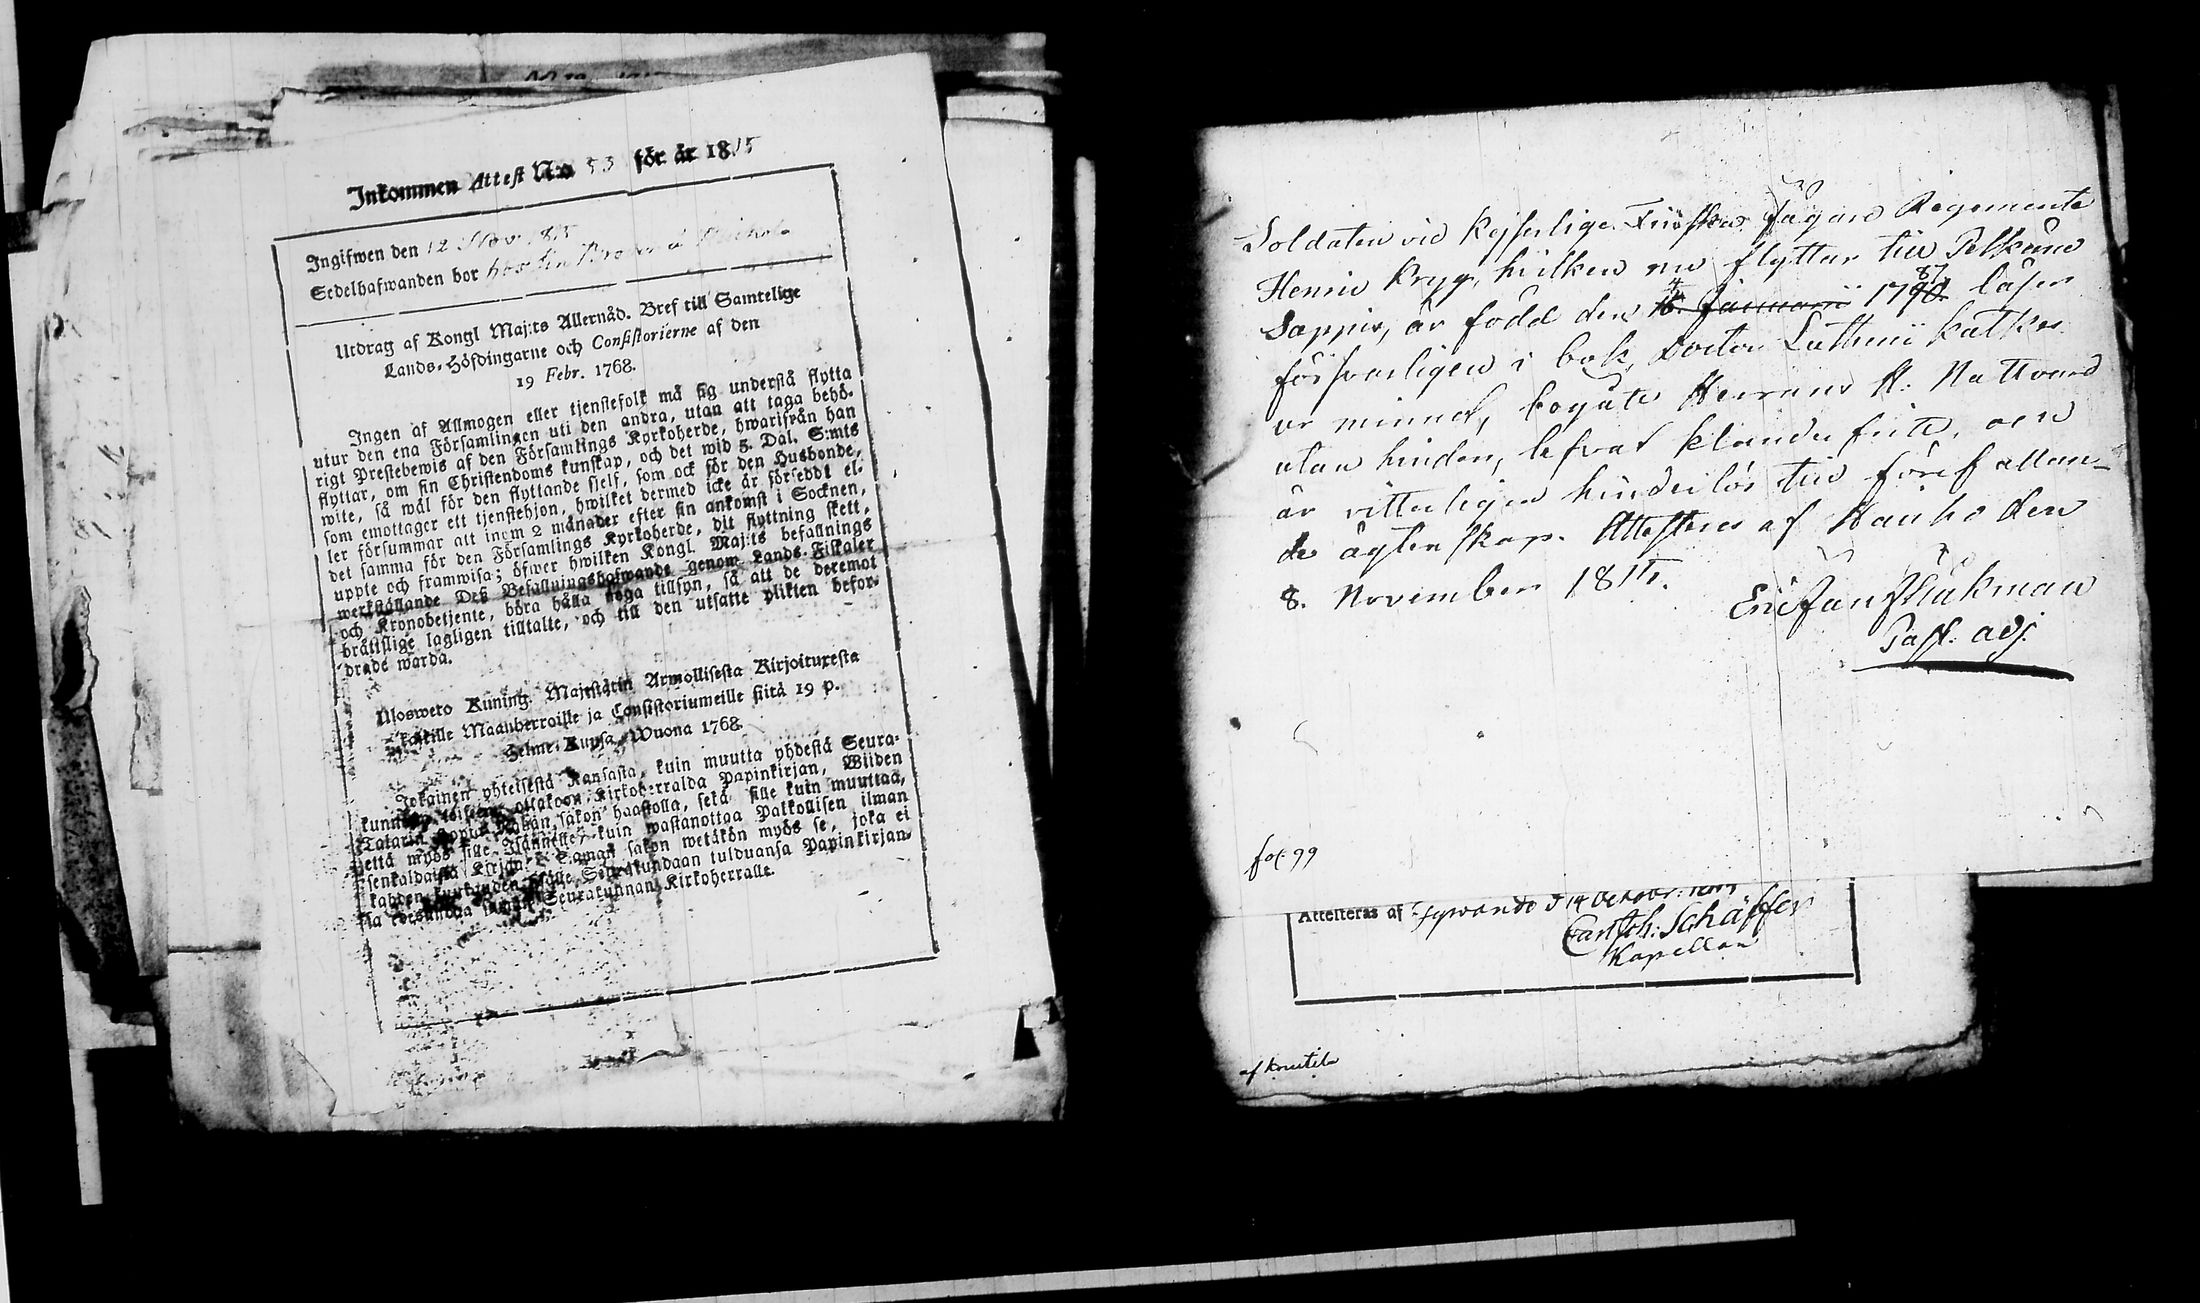 Inkommen Attest N:o 53 för år 1815
Ingifwen den 12 Nov. 1815
Sedelhafwanden bor hos sin Broder å
Utdrag af Kongl Maj:ts Allernåd. Bref till Samtelige
Lands-Höfdingarne och Consistorierne af den
19 Febr. 1768.
Ingen af Allmogen eller tjenstefolk må sig understå flytta
utur den ena Församlingen uti den andra, utan att taga behö-
rigt Prestebewis af den Församlings Kyrkoherde, hwarifrån han
flyttar, om sin Christendoms kunskap, och det wid 5. Dal. S:mts
wite, så wäl för den flyttande sjelf, som ock för den Husbonde,
som emottager ett tjenstehjon, hwilket dermed icke är försedt el-
ler försummar att inom 2 månader efter sin ankomst i Socknen,
det samma för den Församlings Kyrkoherde, dit flyttning skett,
uppte och framwisa; öfwer hwilken Kongl. Maj:ts befallnings
werkställande Deß Befallningshafwande genom Lands-Fiskaler
och Kronobetjente, böra hålla noga tillsyn, så att de deremot
brättslige lagligen tilltalte, och till den utsatte plikten befor-
drade warda.
Ulosweto Kuning. Majestätin Armollisesta Kirjoituxesta
kaikille Maanherroille ja Consistoriumeille siitä 19 p.
Helme-Kuusa Wuona 1768.
Jokainen yhteisestä Kansasta, kuin muutta yhdestä Seura-
kunnasta toiseen, ottakoon Kirkoherralda Papinkirjan, Wiiden
Talarin sakon haastolla, sekä sille kuin muuttaa,
että myös sille Isännälle, kuin wastanottaa Palkollisen ilman
senkaldaista Kirjaa. Saman sakon wetäkön myös se, joka ei
kahden kuukauden sisälle Seurakundaan tulduansa Papinkirjan-
sa edesanna saman Seurakunnan Kirkoherralle.
Soldaten vid Kejserlige Finska Jägare Regemente
Henric Kryg, hvilken nu flyttar till Pelkäne
Sappis, är född den Januarii 1790 87 läser
försvarligen i bok, Doctor Lutherii Katkes
ur minnet, begåtr Herrans H: Nattvard
utan hinder, lefvat klanderfritt, och
är vitterligen hinderlös till förefallan-
de ägtenskap. Attesteras af Hauho den
8. November 1815.
Eric Jan
Past. adj.
fol 99
Attesteras af d 14 October
Carl Joh: Schäffer
Kapellan
af Knutila